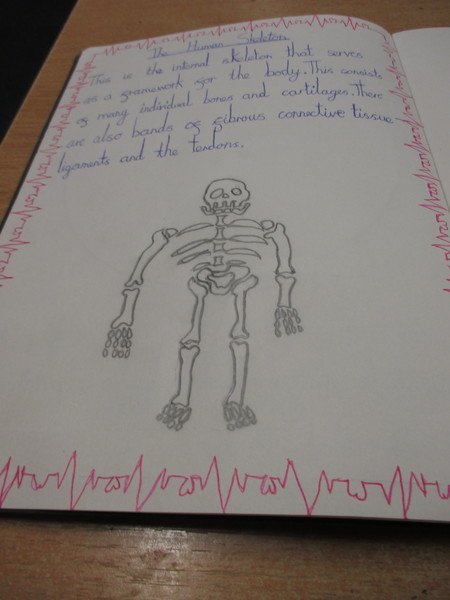 The Human Skeleton
This is the internal skeleton that serves
as a framework for the body. This consists
of many individual bones and cartilages. There
are also bands of fibrous connective tissue-
ligaments and the tendons.